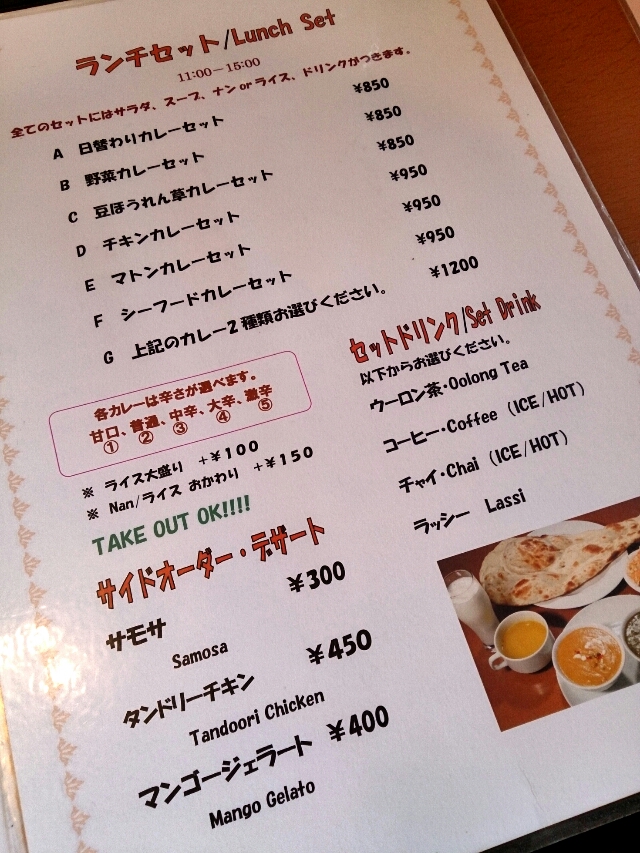 ランチセット/Lunch Set
11:00－15:00
全てのセットにはサラダ、スープ、ナン or ライス、ドリンクがつきます。
A 日替わりカレーセット ¥850
B 野菜カレーセット ¥850
C 豆ほうれん草カレーセット ¥850
D チキンカレーセット ¥950
E マトンカレーセット ¥950
F シーフードカレーセット ¥950
G 上記のカレー2種類お選びください。 ¥1200
各カレーは辛さが選べます。
甘口、普通、中辛、大辛、激辛
① ② ③ ④ ⑤
※ ライス大盛り +¥100
※ Nan/ライス おかわり +¥150
TAKE OUT OK!!!!
セットドリンク/Set Drink
以下からお選びください。
ウーロン茶・Oolong Tea
コーヒー・Coffee (ICE/HOT)
チャイ・Chai (ICE/HOT)
ラッシー Lassi
サイドオーダー・デザート
サモサ ¥300
Samosa
タンドリーチキン ¥450
Tandoori Chicken
マンゴージェラート ¥400
Mango Gelato